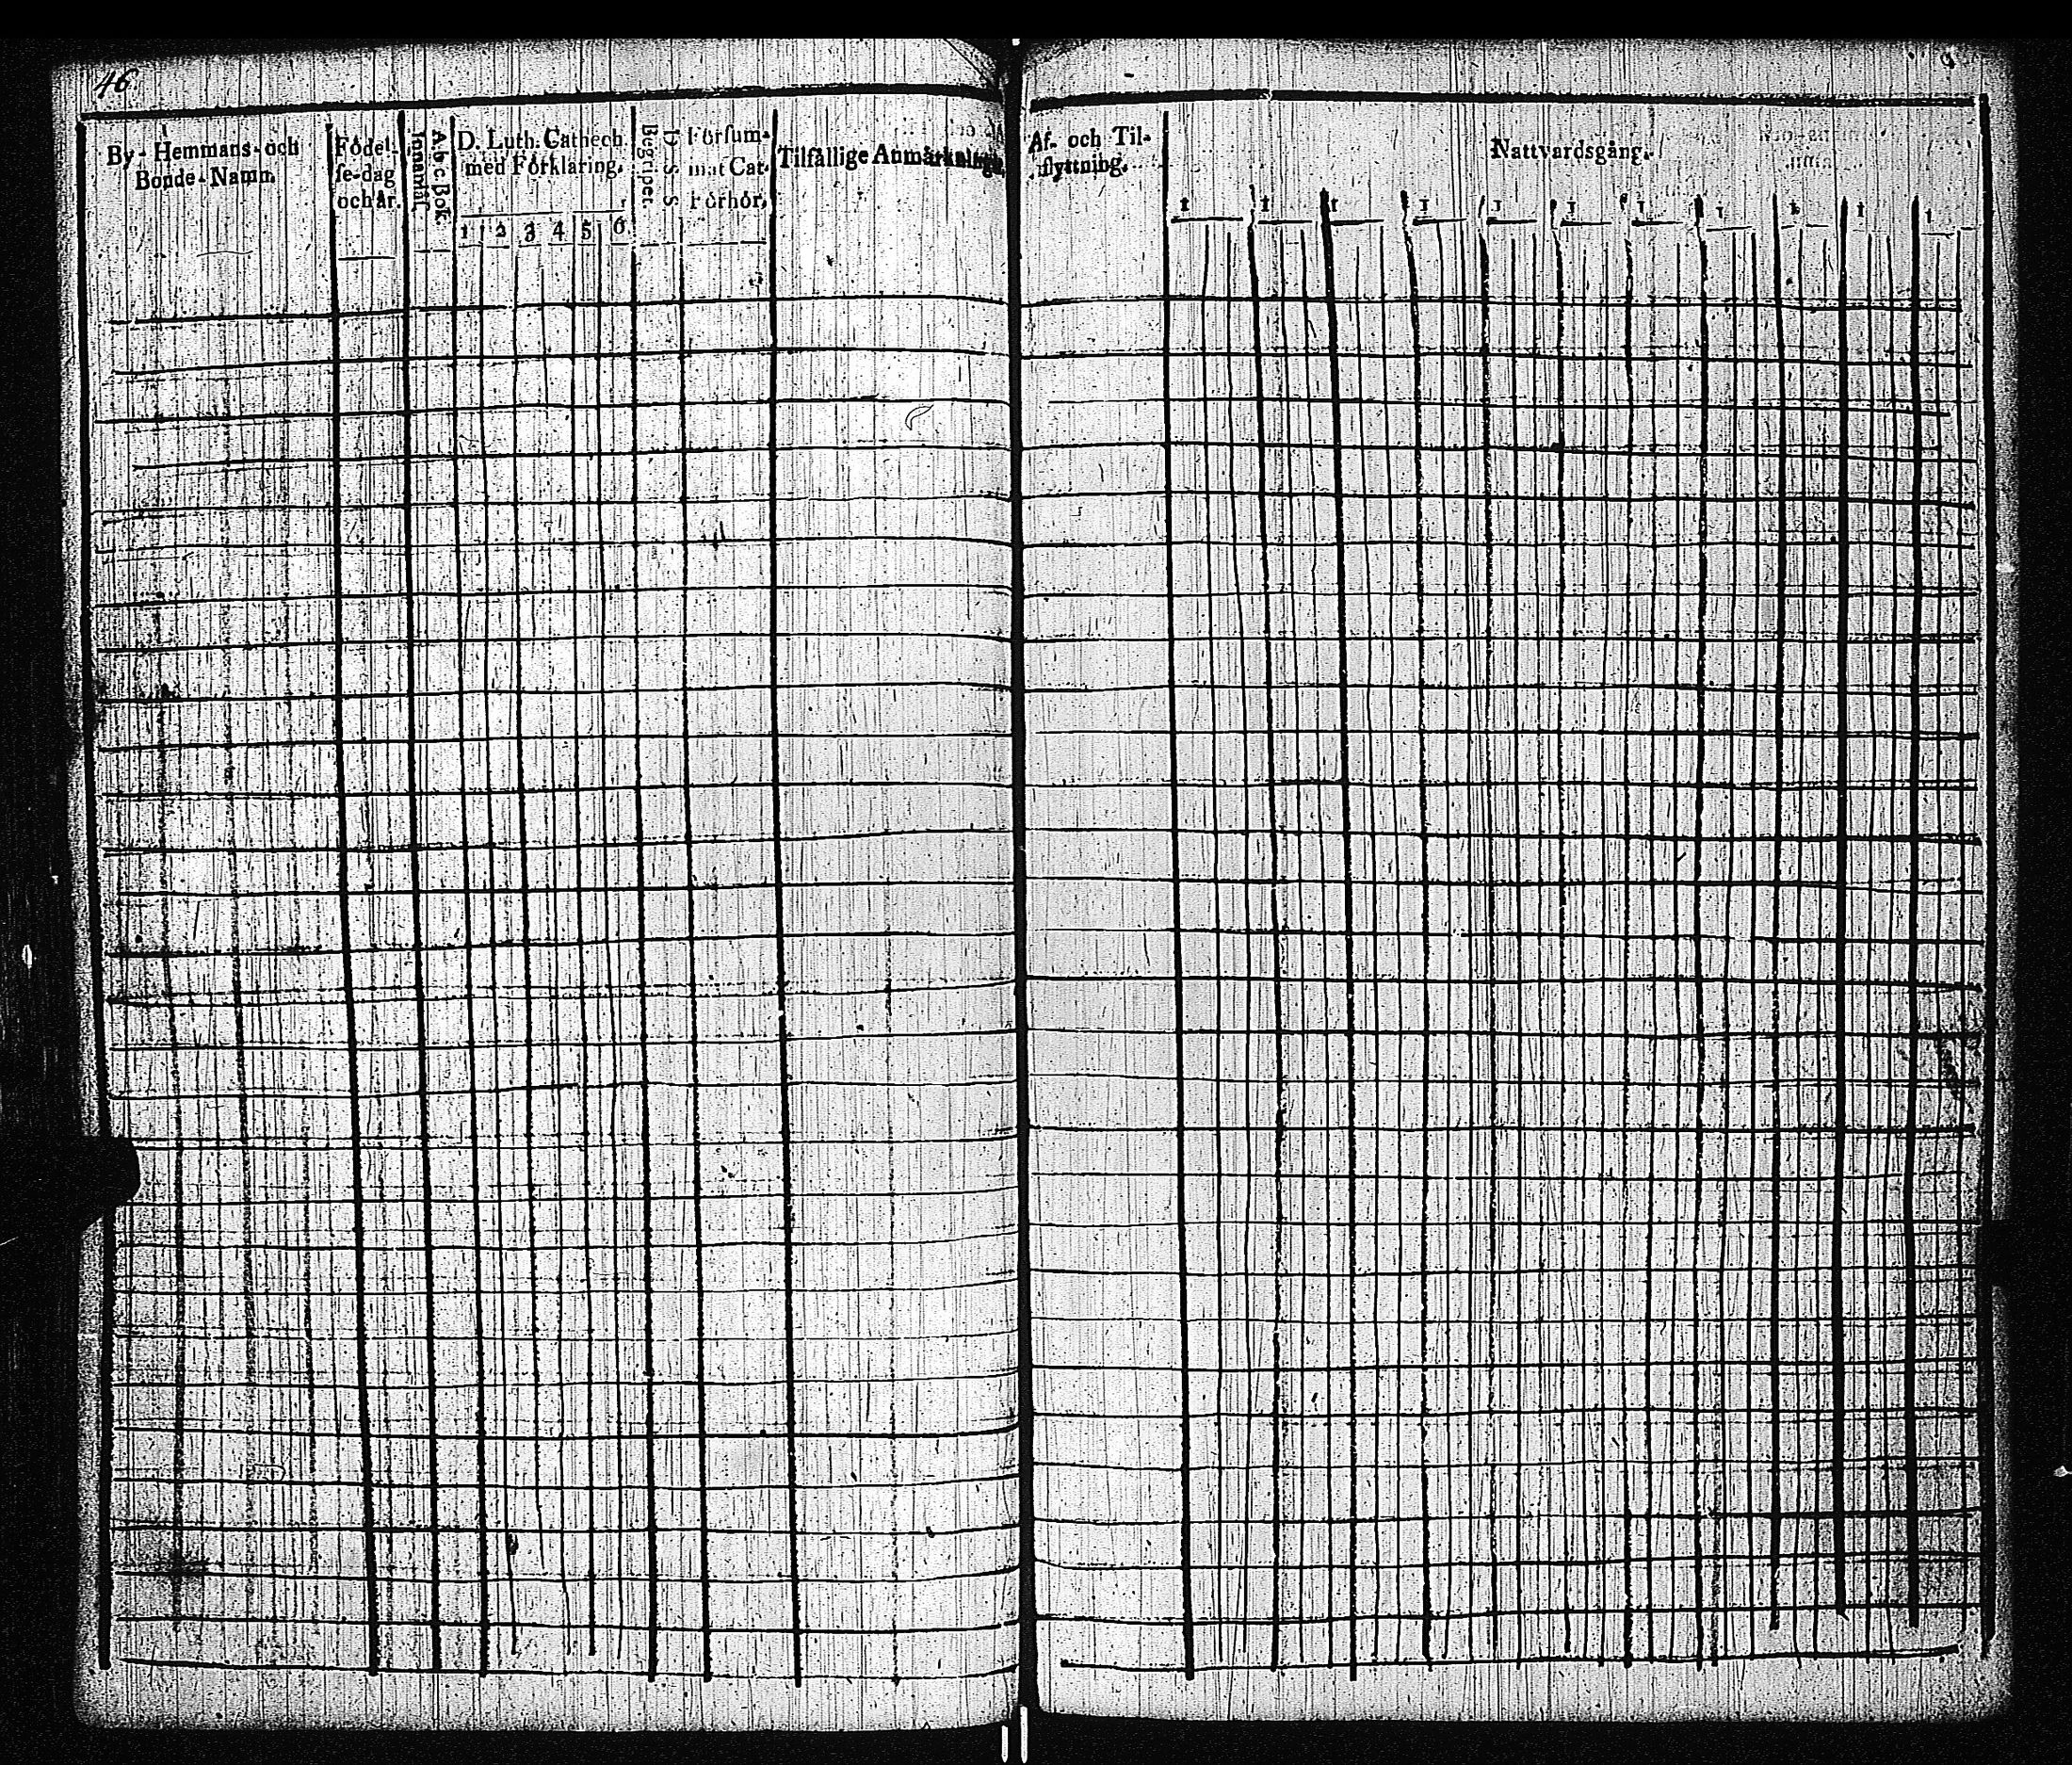 46
By- Hemmans- och
Bonde-Namn.
Födel-
se-dag
och år.
Innanläs.
A b c Bok.
D. Luth. Cathech.
med Förklaring.
1 2 3 4 5 6
Begriper.
D S S
Försum-
mat Cat.
Förhör.
Tilfällige Anmärkningar
Af- och Til-
flyttning.
Nattvardsgång.
1 1 1 1 1 1 1 1 1 1 1